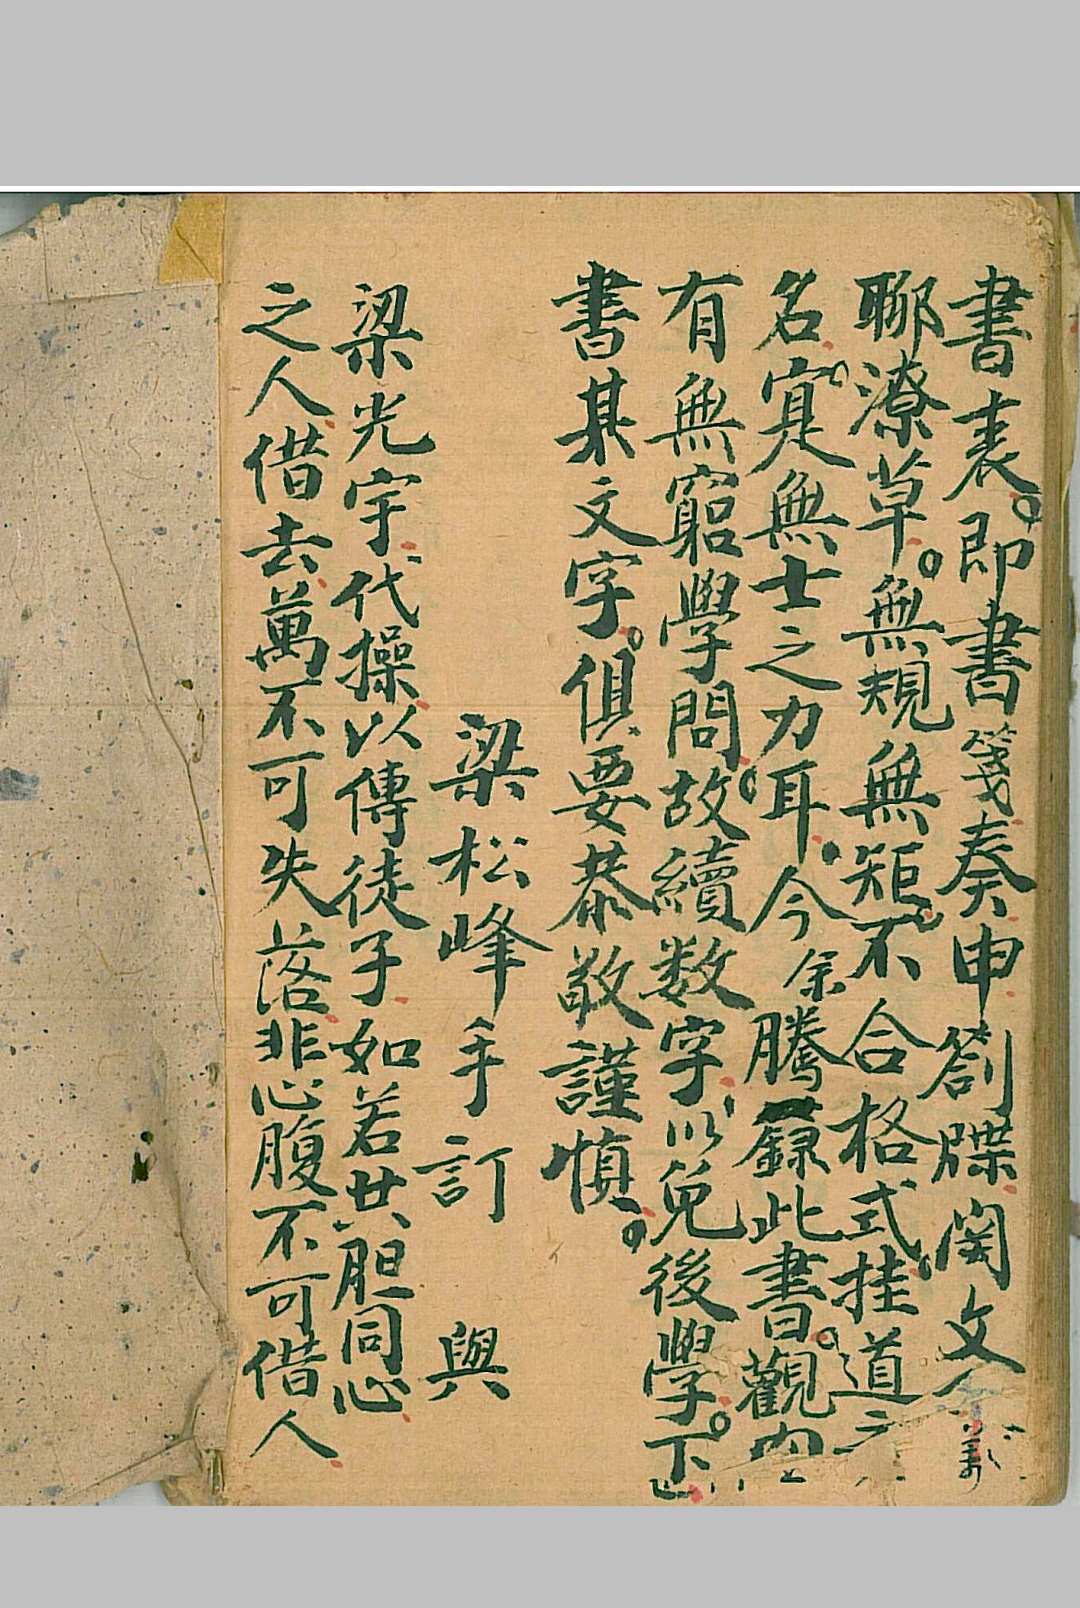 書表。即書箋奏申劄牒関文
聊潦草。無規無矩。不合格式挂道之
名。寔無士之力耳。今余騰録此書。觀内
有無窮學問。故續数字。以免後學。下
書某文字。俱要恭敬謹慎。
梁松峰手訂 與
梁光宇代操以傳徒子如若共胆同心
之人借去萬不可失落非心腹不可借人